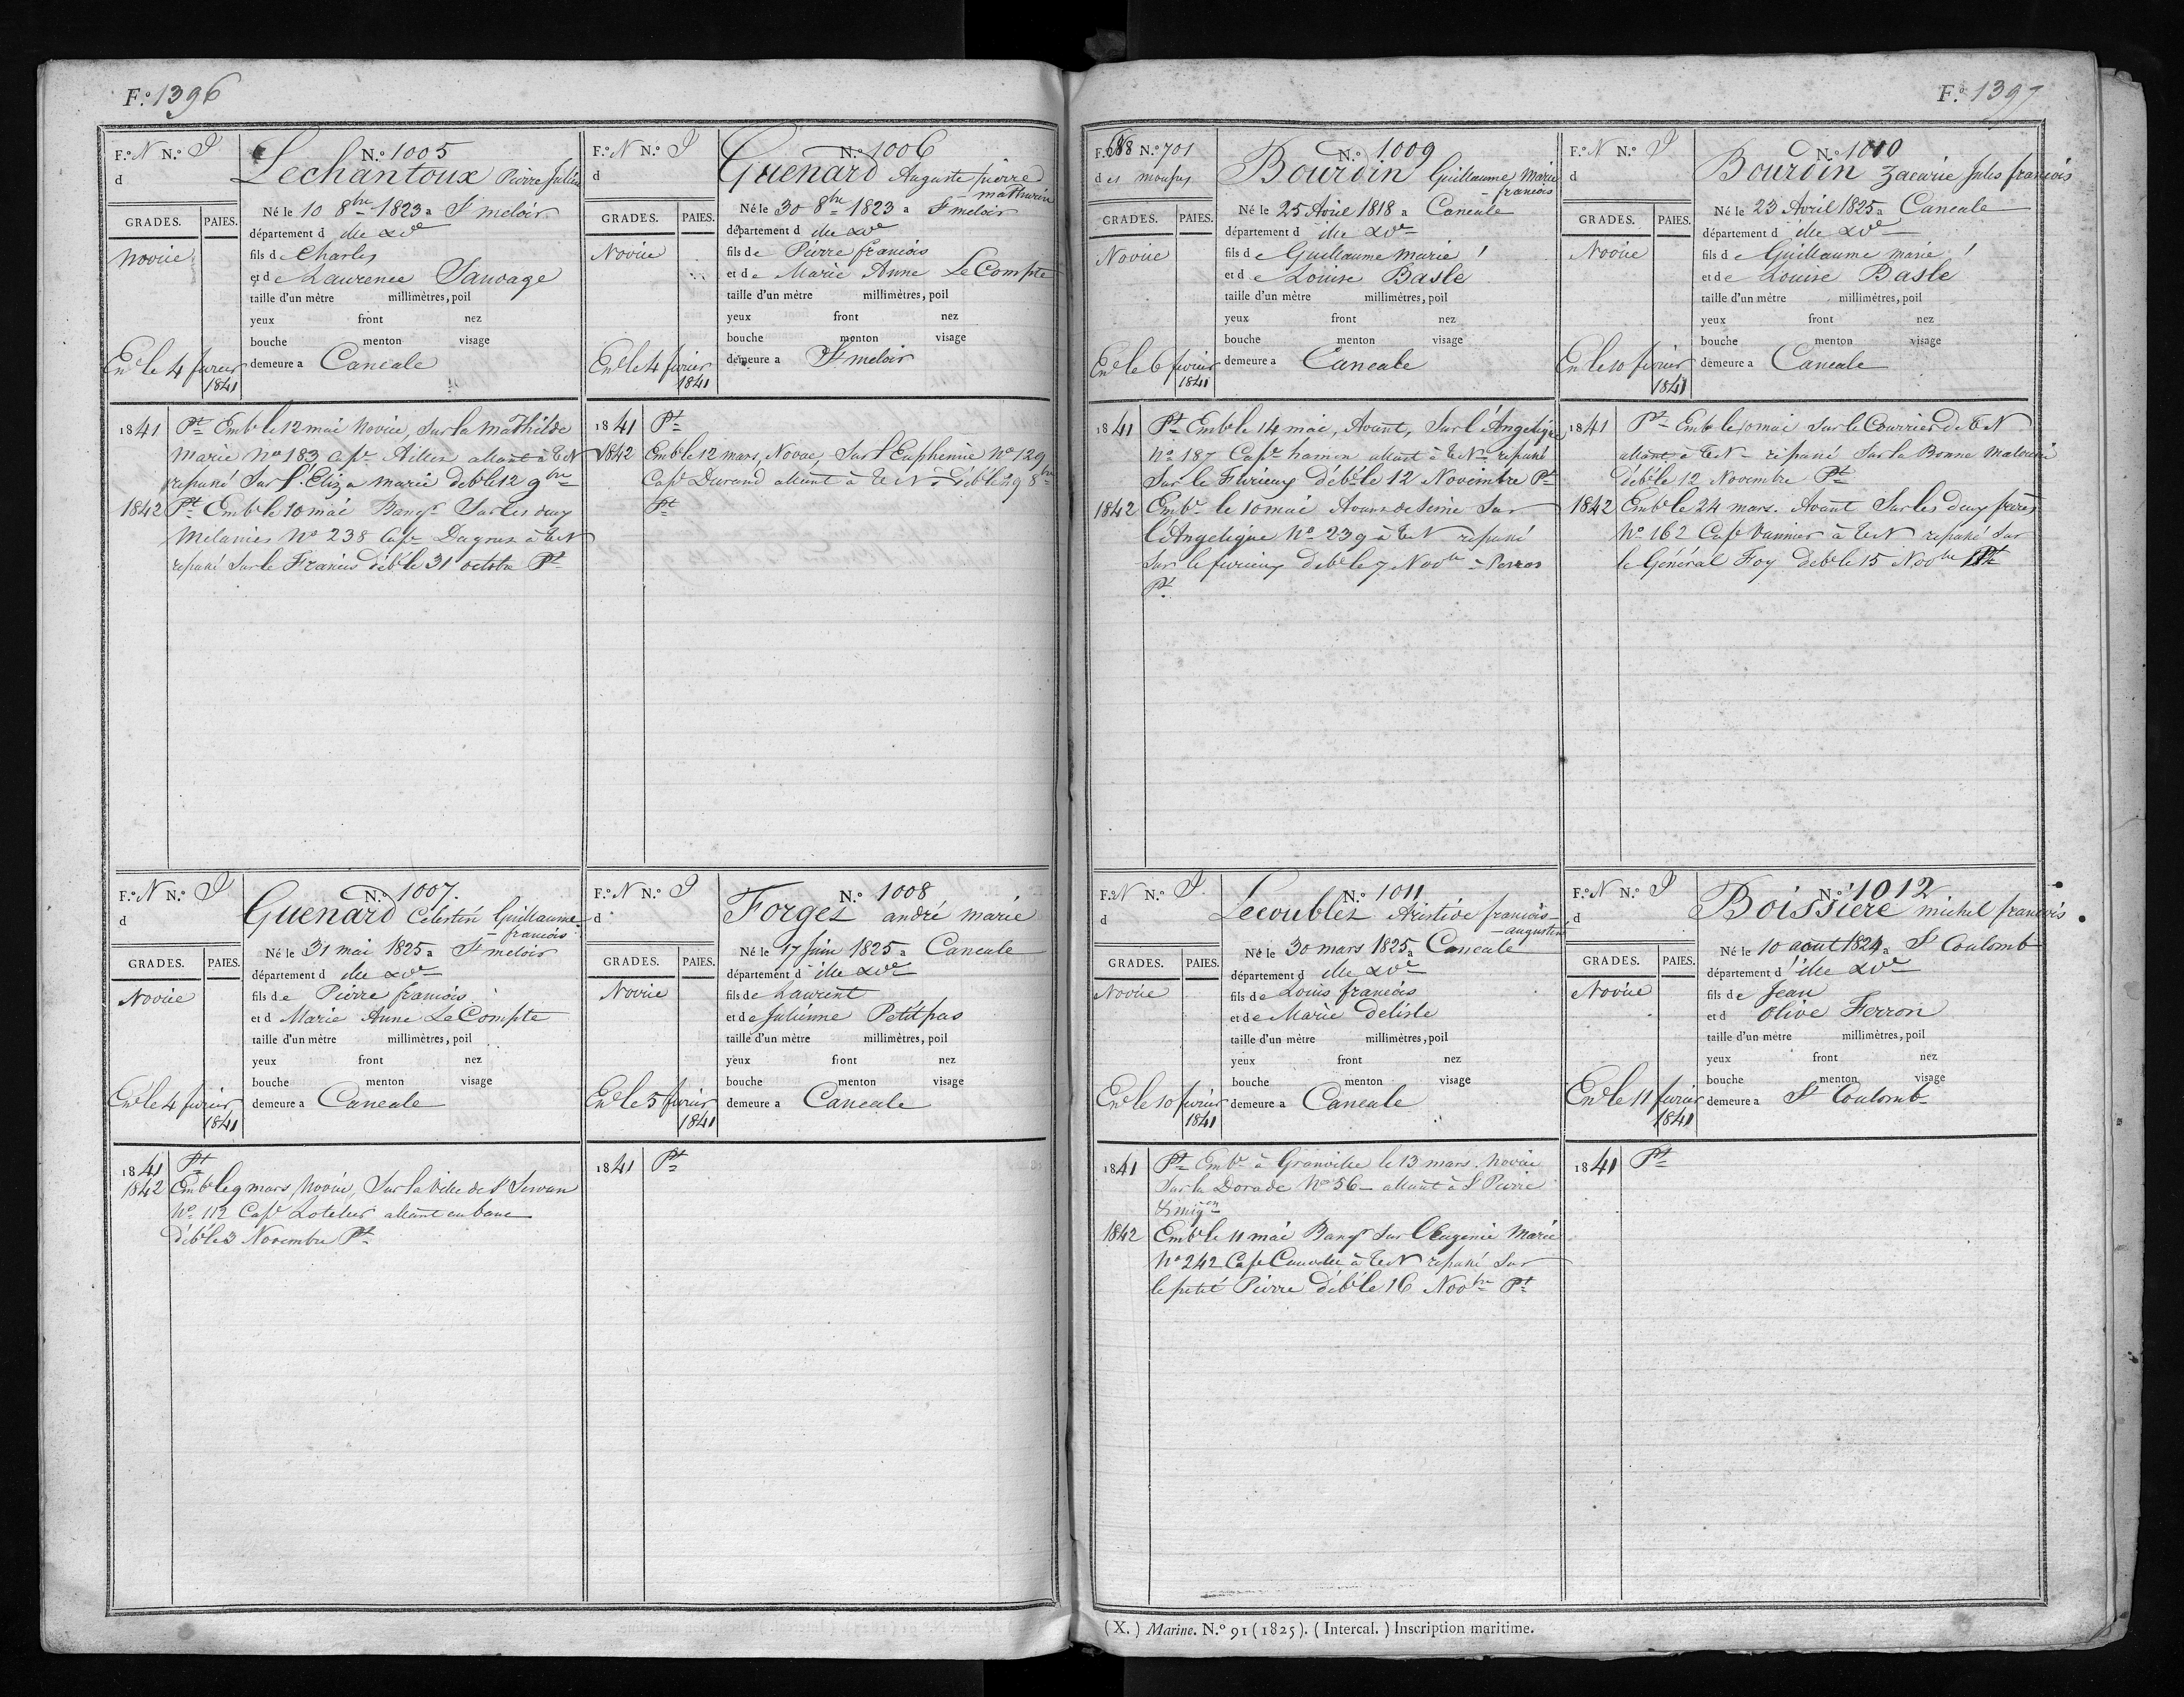 F.º 1396
F.º N N.º P
d
GRADES. PAIES.
novice
Enr le 4 fevrier
1841
N.º 1005
Lechantoux Pierre Julien
Né le 10 8bre 1823 a St meloir
département d ille & Ve
fils de Charles
et de Laurence Sauvage
taille d'un mètre millimètres, poil
yeux front nez
bouche menton visage
demeure a Cancale
1841 Pt Embé le 12 mai Novice, Sur la Mathilde
Marie No 183 Cape allant à T N
repassé Sur l'Eliza Marie débé le 12 9bre
1842 Pt Embé le 10 mai Sur les deux
Melanies No 238 Cape à T N
repassé Sur le Francis débé le 31 octobre Pt
F.º N N.º P
d
GRADES. PAIES.
Novice
Enr le 4 fevrier
1841
N.º 1006
Guenard Auguste pierre
- mathurin
Né le 30 8bre 1823 a St meloir
département d ille & Ve
fils de Pierre francois
et de Marie Anne Le Compte
taille d'un mètre millimètres, poil
yeux front nez
bouche menton visage
demeure a St meloir
1841 Pt
1842 Embé le 12 mars, Novice, Sur l'Euphemie No 129
Cape Durand allant à T N débé le 29 8bre
Pt
F.º N N.º P
d
GRADES. PAIES.
Novice
Enr le 4 fevrier
1841
N.º 1007.
Guenard Célestin Guillaume
- francois
Né le 31 mai 1825 a St meloir
département d ille & Ve
fils de Pierre francois
et d Marie Anne Le Compte
taille d'un mètre millimètres, poil
yeux front nez
bouche menton visage
demeure a Cancale
1841 Pt
1842 Embé le 9 mars, Novice, Sur la Ville de St Servan
No 112 Cape allant au banc
débé le 3 Novembre Pt
F.º N N.º P
d
GRADES. PAIES.
Novice
Enr le 5 fevrier
1841
N.º 1008
Forges andré marie
Né le 17 Juin 1825 a Cancale
département d ille & Ve
fils de Laurent
et de Julienne Petitpas
taille d'un mètre millimètres, poil
yeux front nez
bouche menton visage
demeure a Cancale
1841 Pt
F.º 1397
F.º 688 N.º 701
des mousses
GRADES. PAIES.
Novice
Enr le 6 fevrier
1841
N.º 1009
Bourdin Guillaume Marie
- francois
Né le 25 Avril 1818 a Cancale
département d ille & Ve
fils de Guillaume marie !
et de Louise Basle
taille d'un mètre millimètres, poil
yeux front nez
bouche menton visage
demeure a Cancale
1841 Pt Embé le 14 mai, Avant, Sur l'Angelique
No 187 Cape hamon allant à T N repassé
Sur le Furieux débé le 12 Novembre Pt
1842 Embé le 10 mai Avant de Seine Sur
l'Angelique No 239 à T N repassé
Sur le furieux débé le 7 Novbre
Pt
F.º N N.º P
d
GRADES. PAIES.
Novice
Enr le 10 fevrier
1841
N.º 1010
Bourdin Zacarie Jules francois
Né le 23 Avril 1825 a Cancale
département d ille & Ve
fils de Guillaume marie !
et de Louise Basle
taille d'un mètre millimètres, poil
yeux front nez
bouche menton visage
demeure a Cancale
1841 Pt Embé le 10 mai Sur le Courrier de T N
allant à T N repassé Sur la Bonne Malouine
débé le 12 Novembre Pt
1842 Embé le 24 mars. Avant Sur les deux freres
No 162 Cape Vannier à T N repassé Sur
le Général Foy débé le 15 Novbre Pt
F.º N N.º P
d
GRADES. PAIES.
Novice
Enr le 10 fevrier
1841
N.º 1011
Lecoublez Aristide francois
- augustin
Né le 30 mars 1825 a Cancale
département d ille & Ve
fils de Louis francois
et de Marie delisle
taille d'un mètre millimètres, poil
yeux front nez
bouche menton visage
demeure a Cancale
1841 Pt Embé à Granville le 13 mars. Novice
Sur la Dorade No 56 - allant à St Pierre
1842 Embé le 11 mai Sur l'Eugenie Marie
No 242 Cape à T N repassé Sur
le petit Pierre débé le 16 Novbre Pt
F.º N N.º P
d
GRADES. PAIES.
Novice
Enr le 11 fevrier
1841
N.º 1012
Boissiere michel francois
Né le 10 aout 1824 a St Coulomb
département d ille & Ve
fils de Jean
et d Olive Ferron
taille d'un mètre millimètres, poil
yeux front nez
bouche menton visage
demeure a St Coulomb
1841 Pt
(X.) Marine. N.º 91 (1825). (Intercal.) Inscription maritime.